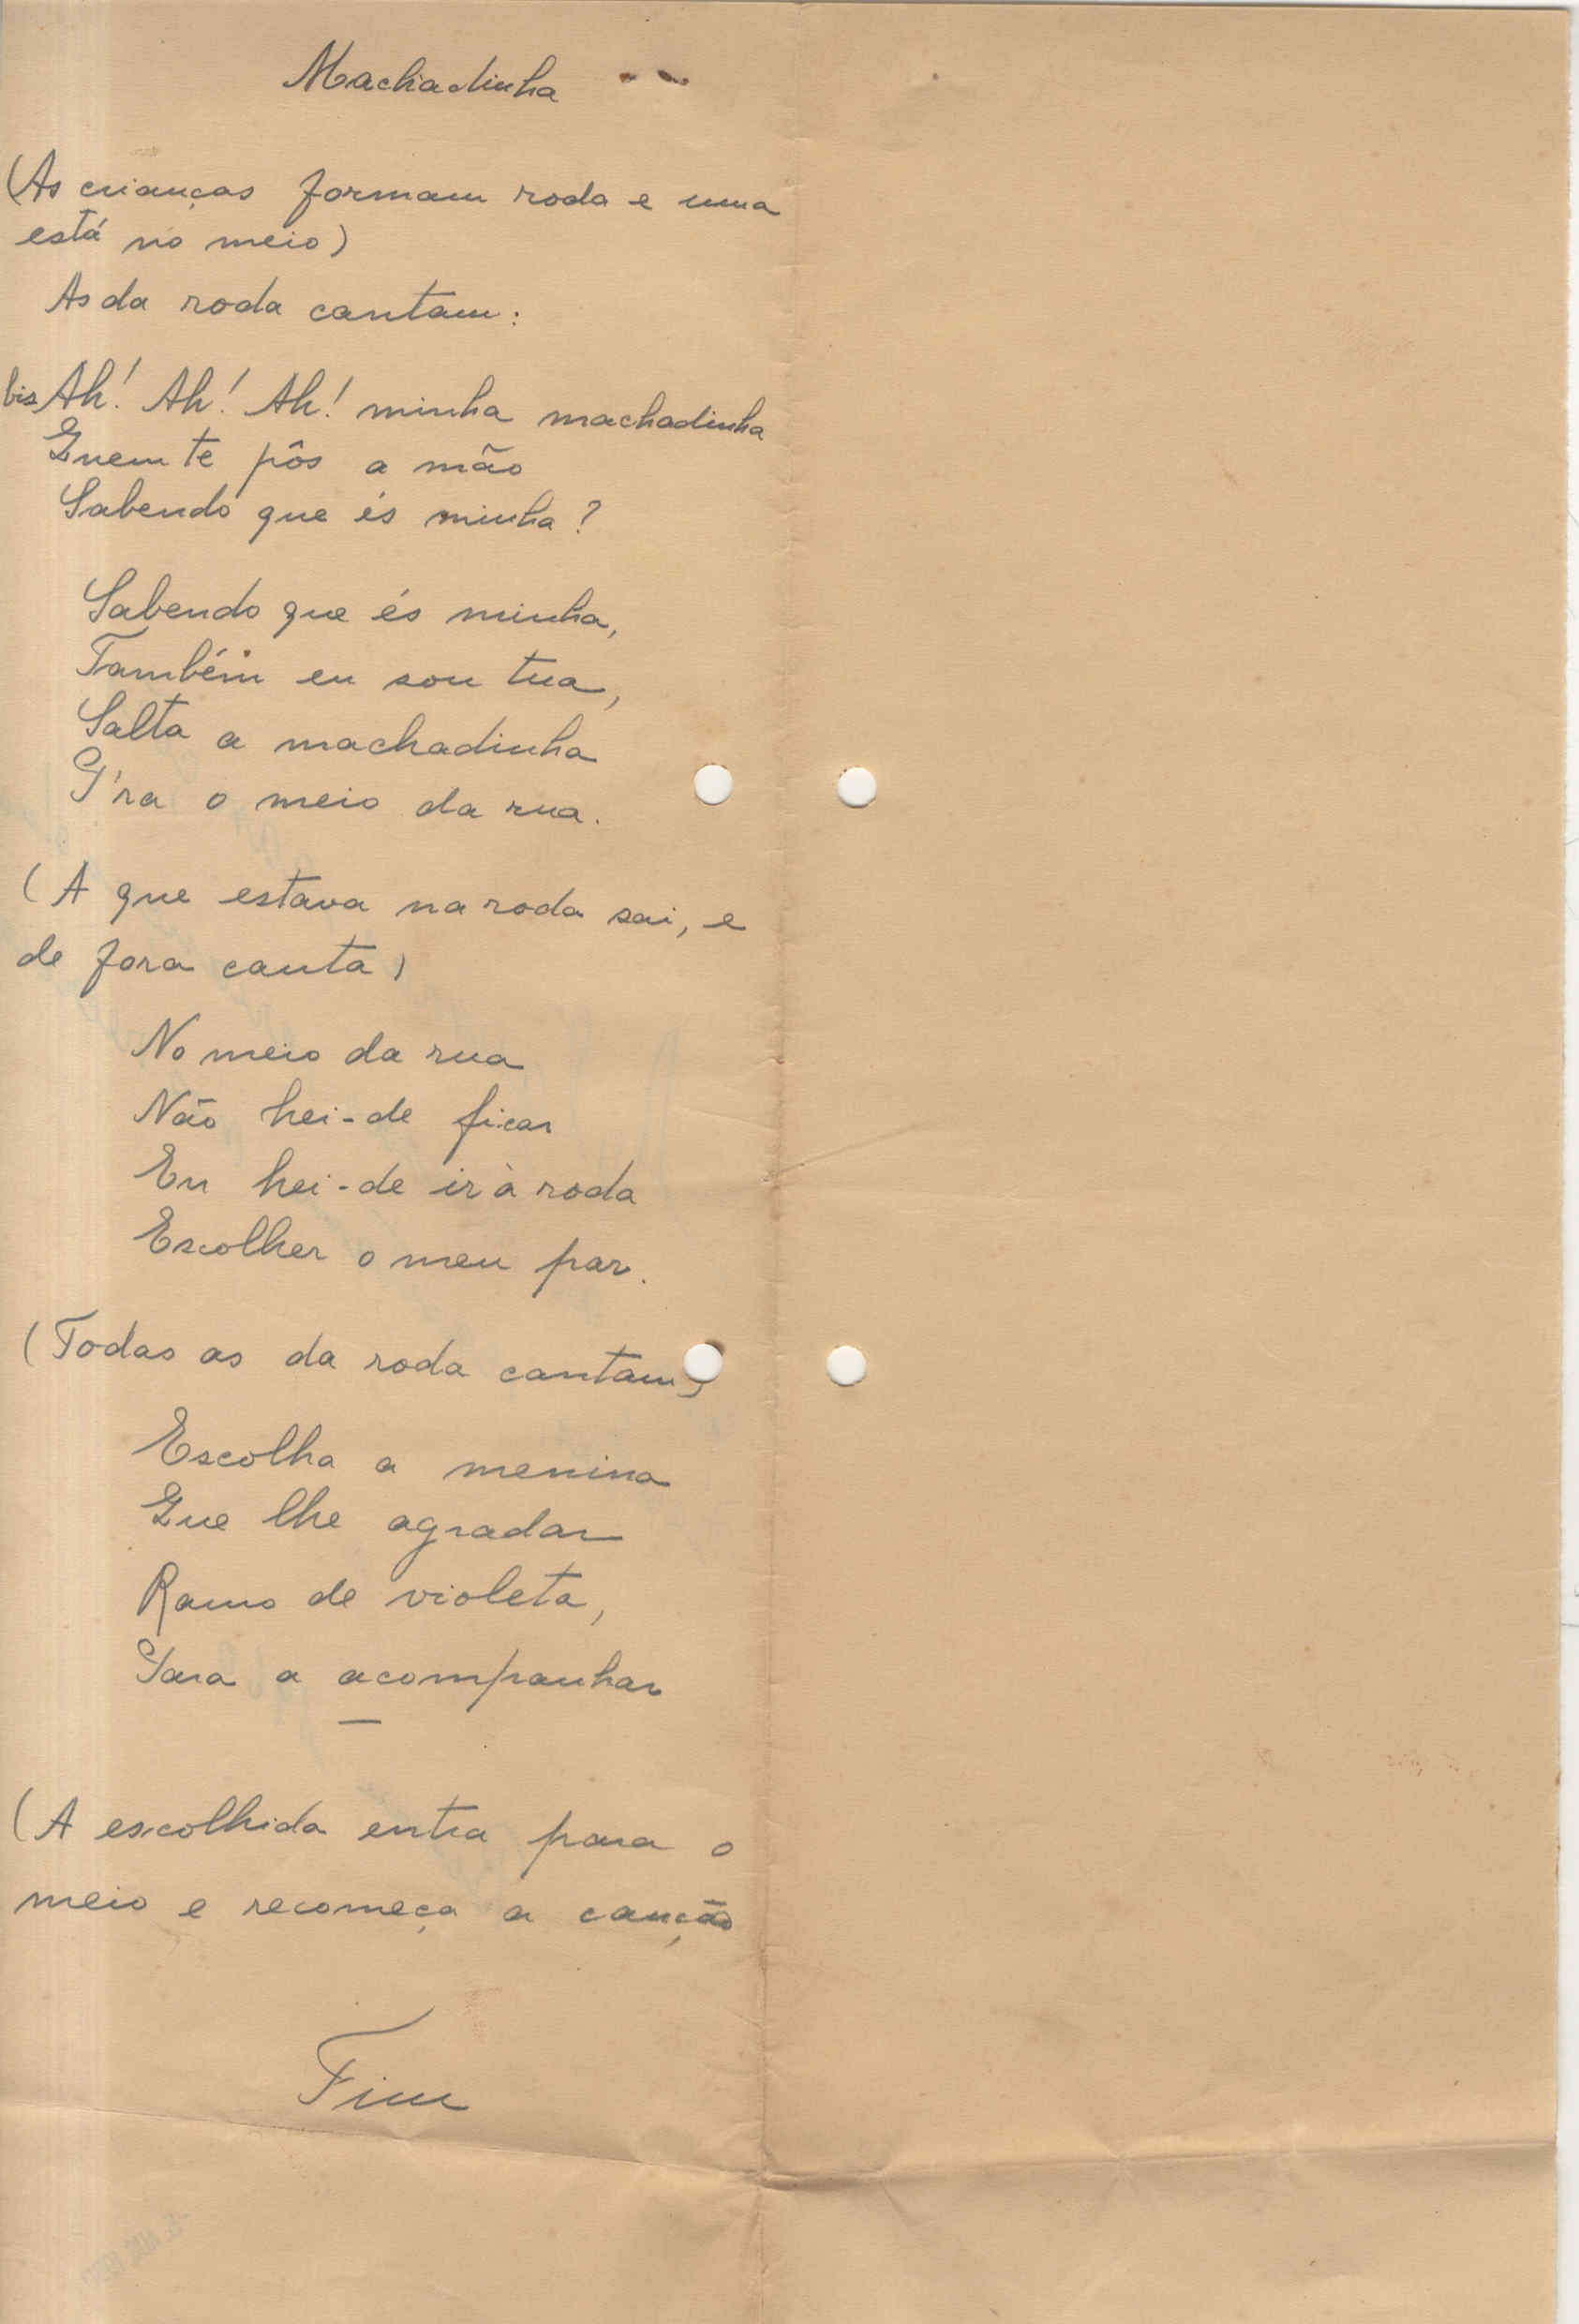 Machadinha
(As crianças formam roda e uma
está no meio)
As da roda cantam:
bis Ah! Ah! Ah! minha machadinha
Quem te pôs a mão
Sabendo que és minha?
Sabendo que és minha,
Também eu sou tua,
Salta a machadinha
P'ra o meio da rua.
(A que estava na roda sai, e
de fora canta)
No meio da rua
Não hei-de ficar
Eu hei-de ir à roda
Escolher o meu par.
(Todas as da roda cantam)
Escolha a menina
Que lhe agradar
Ramo de violeta,
Para a acompanhar
(A escolhida entra para o
meio e recomeça a canção
Fim